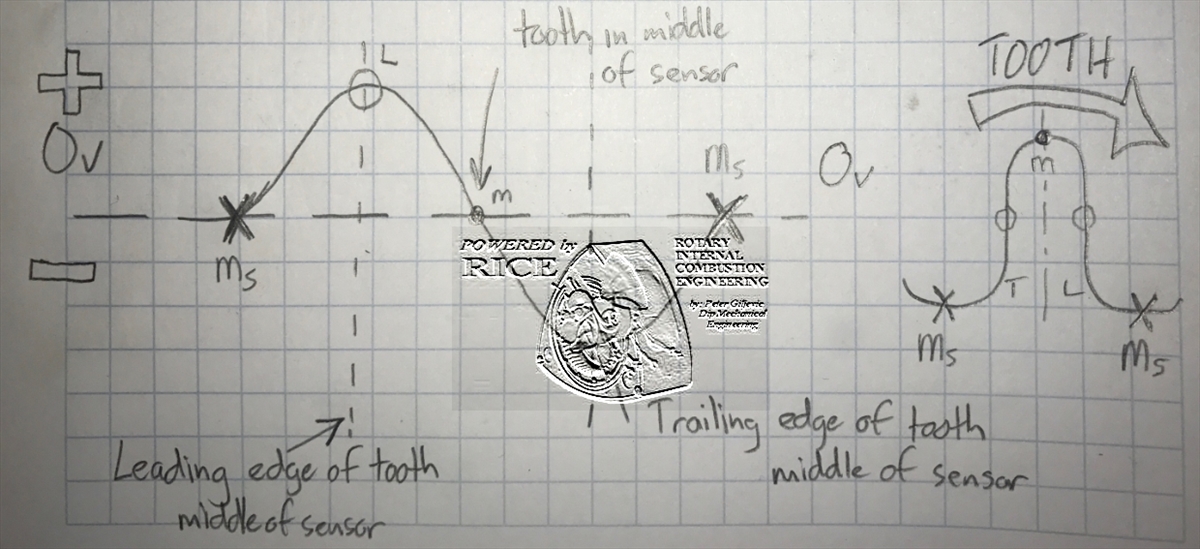 +
L
tooth in middle
of sensor
TOOTH
Ov
Ms
Ov
m
m
Ms
T
L
Ms
Ms
POWERED by
RICE
ROTARY
INTERNAL
COMBUSTION
ENGINEERING
by: Peter Giljevic
Dip.Mechanical
Engineering
Leading edge of tooth
middle of sensor
Trailing edge of tooth
middle of sensor